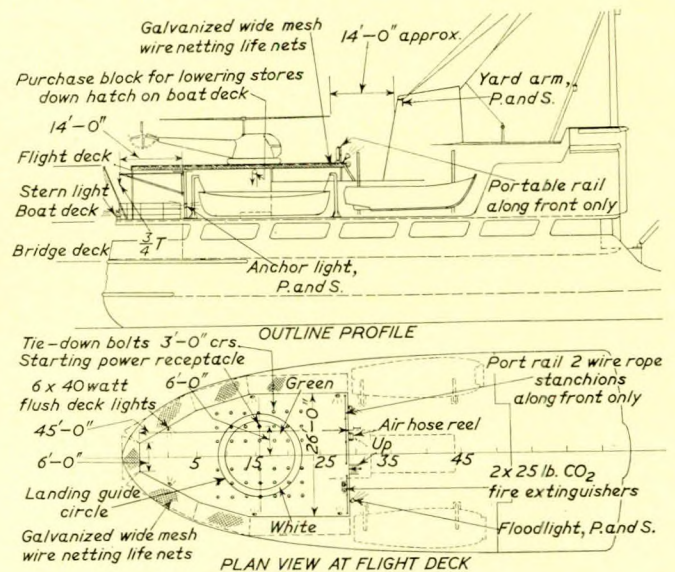 Galvanized wide mesh
wire netting life nets
14'-0" approx.
Purchase block for lowering stores
down hatch on boat deck
Yard arm,
P. and S.
14'-0"
Flight deck
Stern light
Boat deck
Portable rail
along front only
3/4 T
Bridge deck
Anchor light,
P. and S.
OUTLINE PROFILE
Tie-down bolts 3'-0" crs.
Starting power receptacle
6 x 40 watt
flush deck lights
6'-0"
Green
Port rail 2 wire rope
stanchions
along front only
45'-0"
6'-0"
26'-0"
Air hose reel
Up
6'-0"
5 15 25 35 45
2 x 25 lb. CO2
fire extinguishers
Landing guide
circle
White
Floodlight, P. and S.
Galvanized wide mesh
wire netting life nets
PLAN VIEW AT FLIGHT DECK